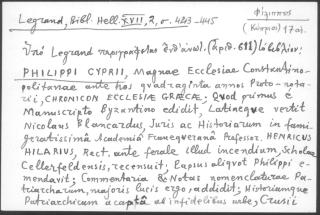 Φίλιππος
(Κύπριος) 17 αι.
Legrand, Bibl. Hell. XVII, 2, σ. 443-445
Ὑπὸ Legrand περιγράφεται (ἀρ. 611) βιβλίον:
PHILIPPI CYPRII, Magnae Ecclesiae Constantino-
politanae ante hos quadraginta annos Proto-nota-
rii, CHRONICON ECCLESIÆ GRÆCÆ; Quod primus e
Manuscripto Byzantino edidit, Latineque vertit
Nicolaus Blancardus, Juris ac Historiarum in fami-
geratissima Academia Franequerana Professor. HENRICUS
HILARIUS, Rect. ante ferale illud incendium, Scholae
Cellerfeldensis, recensuit; Lapsus aliquot Philippi e-
mendavit; Commentaria & Notas nomenclaturae Pa-
triarcharum, majoris lucis ergo, addidit; Historiamque
Patriarchicum a capta ab infidelibus urbe, Crusii